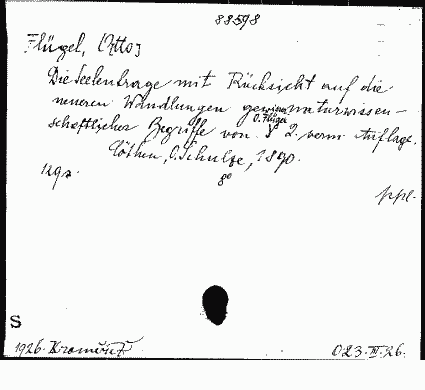 88598
Flügel, Otto;
Die Seelenfrage mit Rücksicht auf die
neueren Wandlungen gewisser naturwissen-
schaftlicher Begriffe von O. Flügel 2. verm Auflage.
Cöthen, O. Schulze, 1890.
129 s. 8°
ppl.
S
1926. 023.III.26.